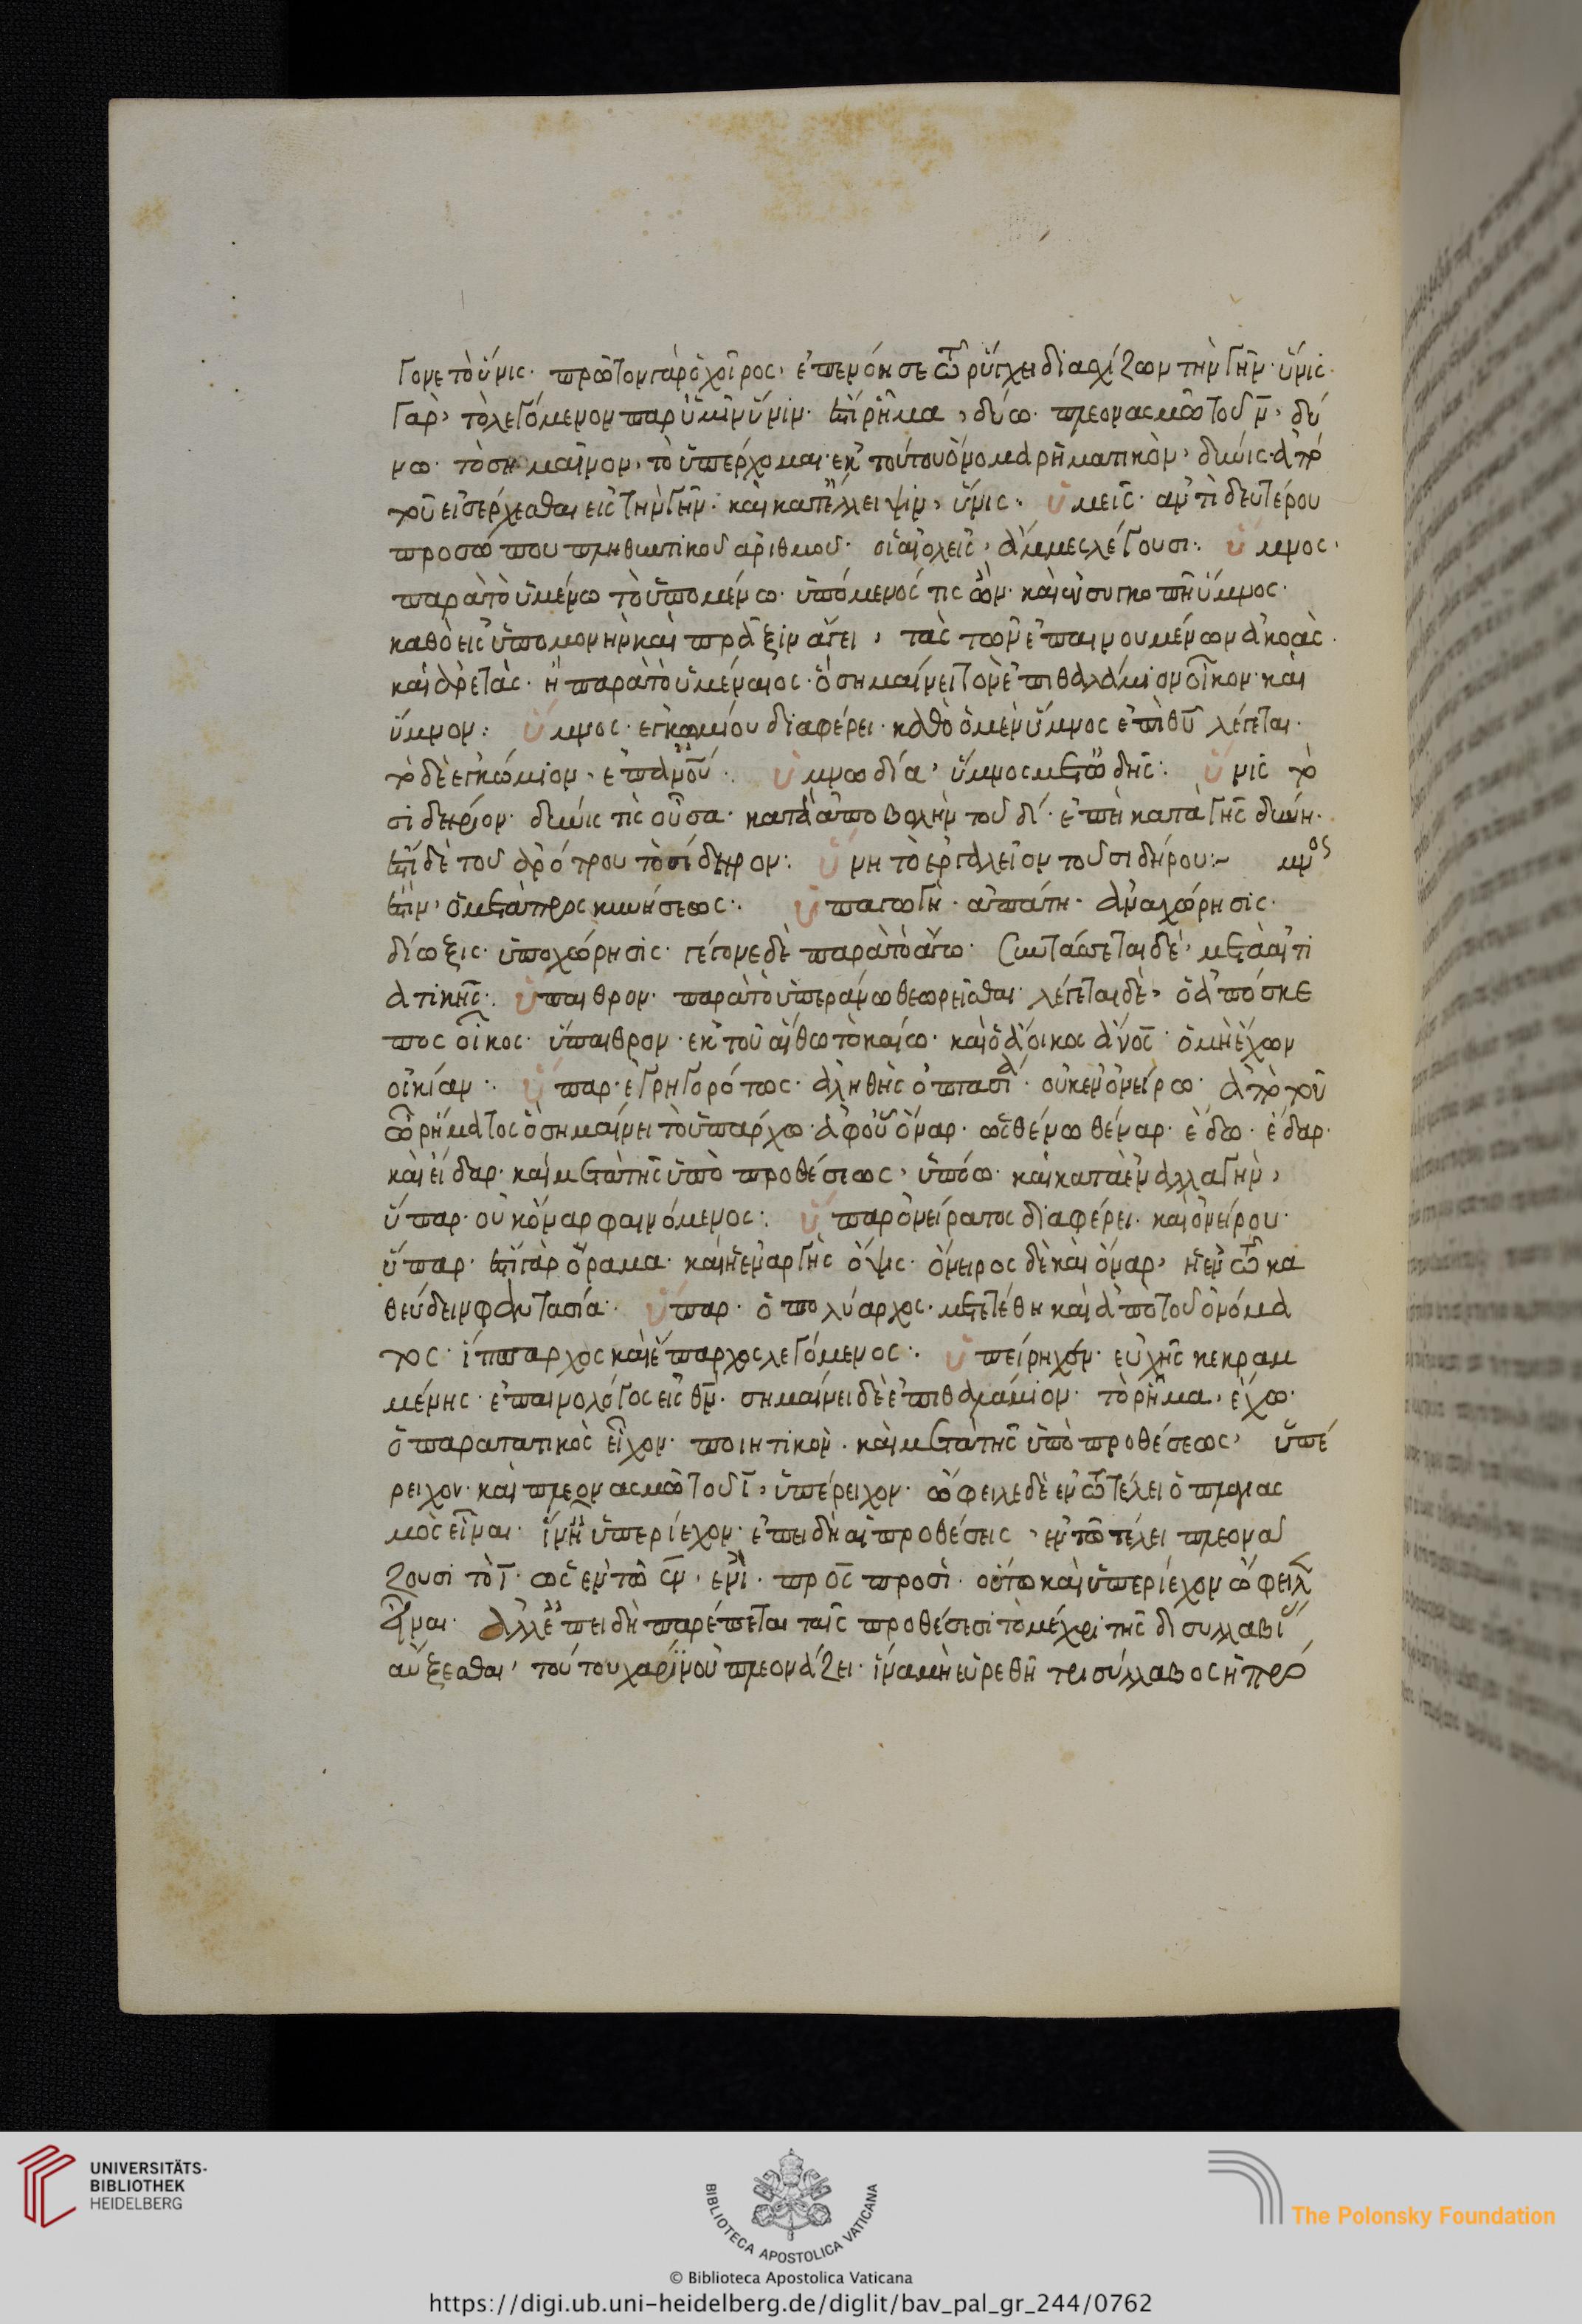 γονε τὸ ὕνις· πρῶτον γὰρ ὁ χοῖρος, ἐπενόησε τῶ ρύγχει διασχίζων τὴν γῆν· ὕνις·
γὰρ, τὸ λεγόμενον παρ ὑμῖν ὕνιν· ἐπίρρημα, δύω· πλεονασμῶ τοῦ ν̄, δύ
νω· τὸ σημαῖνον, τὸ ὑπέρχομαι· ἐκ τούτου ὄνομα ρηματικὸν, δύνις· ἀπὸ
τοῦ εἰσέρχεσθαι εἰς τὴν γῆν· καὶ κατ' ἔλλειψιν, ὕνις· ὑμεῖς· ἀντὶ δευτέρου
προσώπου πληθυντικοῦ ἀριθμοῦ· οἱ αἰολεῖς, ἄμμες λέγουσι· ὕμνος·
παρὰ τὸ ὑμένω τὸ ὑπομένω· ὑπόμενός τις ὤν· καὶ ἐν συγκοπῆ ὕμνος·
καθὸ εἰς ὑπομονὴν καὶ πρᾶξιν ἄγει, τὰς τῶν ἐπαινουμένων ἀκοὰς·
καὶ ἀρετάς· ἢ παρὰ τὸ ὑμέναιος· ὃ σημαίνει τὸν ἐπιθαλάμιον οἶκον· καὶ
ὕμνον: ὕμνος· ἐγκωμίου διαφέρει· καθὸ ὁ μὲν ὕμνος ἐπὶ θῦ λέγεται·
τὸ δὲ ἐγκώμιον, ἐπ ἀνοῦ· ὑμνωδία, ὕμνος μετ ὠδῆς: ὕνις τὸ
σιδηρίον· δύνις τὶς οὖσα· κατὰ ἀποβολὴν τοῦ δ· ἐπεὶ κατὰ γῆς δύνη·
ἐπὶ δὲ τοῦ ἀρότρου τὸ σίδηρον: ὕνη τὸ ἐργαλεῖον τοῦ σιδήρου:~ μνος
ἐπὶν, ὁ μετὰ πρὸς κινήσεως: ὑπαγωγὴ· ἀπάτη· ἀναχώρησις·
δίωξις· ὑποχώρησις· γέγονε δὲ παρὰ τὸ ἄγω· Συντάσσεται δὲ, μετὰ αἰτι
ατικῆς: ὕπαιθρον· παρὰ τὸ ὑπεράνω θεωρεῖσθαι· λέγεται δὲ, ὁ ἀπόσκε
πος οἶκος· ὕπαιθρον· ἐκ τοῦ αἴθω τὸ καίω· καὶ ὁ ἄοικος ἄνος· ὁ μὴ ἔχων
οἰκίαν: ὕπαρ· ἐγρηγορότως· ἀληθὴς ὀπτασία· οὐκ ἐν ὀνείρω· ἀπὸ τοῦ
ὢ ρήματος ὃ σημαίνει τὸ ὑπάρχω· ἀφ οὗ ὄναρ· ὡς θένω θέναρ· ἔδω· ἔδαρ·
καὶ εἶδαρ· καὶ μετὰ τῆς ὑπὸ προθέσεως, ὑπόω· καὶ κατὰ ἐναλλαγὴν,
ὕπαρ· οὐκ ὄναρ φαινόμενος: ὕπαρ ὀνείρατος διαφέρει· καὶ ὀνείρου·
ὕπαρ· ἐπὶ γὰρ ὅραμα· καὶ ἡ ἐναργὴς ὄψις· ὄνειρος δὲ καὶ ὄναρ, ἡ ἐν τῶ κα
θεύδειν φαντασία: ὕπαρ· ὁ πολύαρχος· μετετέθη καὶ ἀπὸ τοῦ ὀνόμα
τος· ἵππαρχος καὶ ἔπαρχος λεγόμενος: ὑπείρηχον· εὐχῆς κεκραμ
μένης· ἐπαινολόγος εἰς θν· σημαίνει δὲ ἐπιθαλάμιον· τὸ ρῆμα, ἔχω·
ὁ παρατατικὸς εἶχον· ποιητικὸν· καὶ μετὰ τῆς ὑπὸ προθέσεως, ὑπέ
ρειχον· καὶ πλεονασμῶ τοῦ ι, ὑπέρειχον· ὤφειλε δὲ ἐν τῶ τέλει ὁ πλεονας
μὸς εἶναι· ἵν ἦ ὑπεριέχον· ἐπειδὴ αἱ προθέσεις, ἐν τῶ τέλει πλεονά
ζουσι τὸ ι· ὡς ἐν τῶ ἐν, ἐνὶ· πρὸς προσὶ· οὕτω καὶ ὑπεριέχον ὤφειλ
εἶναι· ἀλλ ἐπειδὴ παρέπεται ταῖς προθέσεσι τὸ μέχρι τῆς δισυλλαβί
αὔξεσθαι, τούτου χάριν οὐ πλεονάζει· ἵνα μὴ εὑρεθῆ τρισύλλαβος ἡ πρό
UNIVERSITÄTS-
BIBLIOTHEK
HEIDELBERG
BIBLIOTECA APOSTOLICA VATICANA
The Polonsky Foundation
© Biblioteca Apostolica Vaticana
https://digi.ub.uni-heidelberg.de/diglit/bav_pal_gr_244/0762